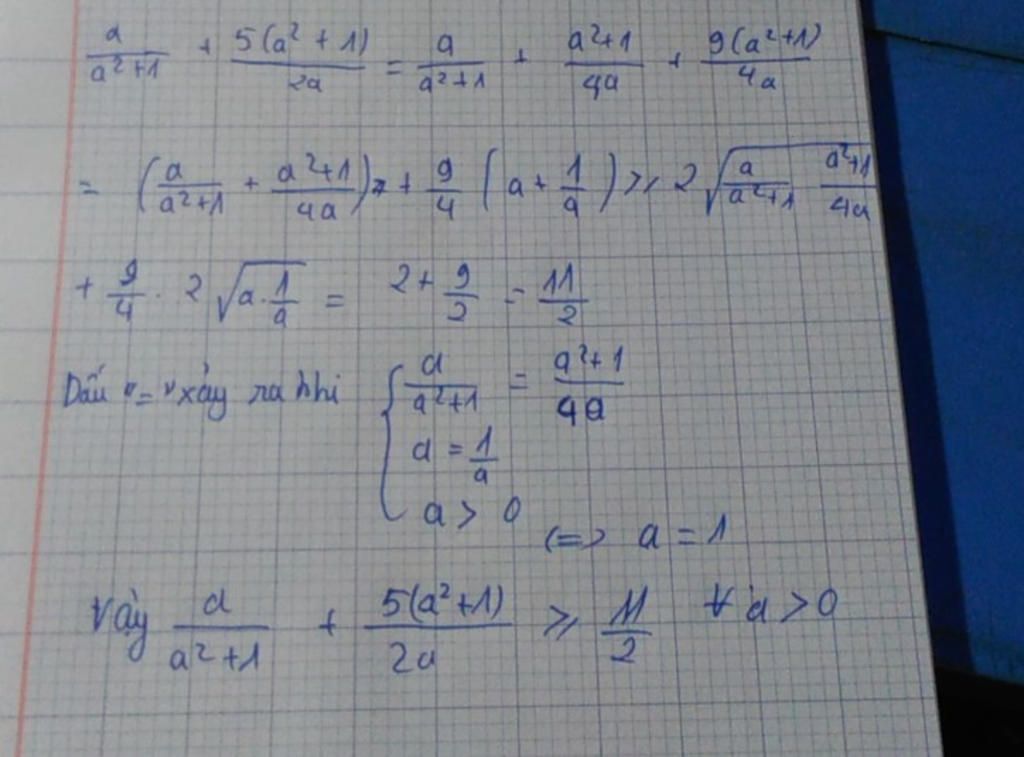 a/(a²+1) + 5(a²+1)/2a = a/(a²+1) + (a²+1)/4a + 9(a²+1)/4a
= (a/(a²+1) + (a²+1)/4a) + 9/4 (a + 1/a) ≥ 2√(a/(a²+1) (a²+1)/4a)
+ 9/4 . 2√(a . 1/a) = 2 + 9/2 = 11/2
Dấu "=" xảy ra khi { a/(a²+1) = (a²+1)/4a
a = 1/a
a > 0
<=> a = 1
Vậy a/(a²+1) + 5(a²+1)/2a ≥ 11/2 ∀ a > 0